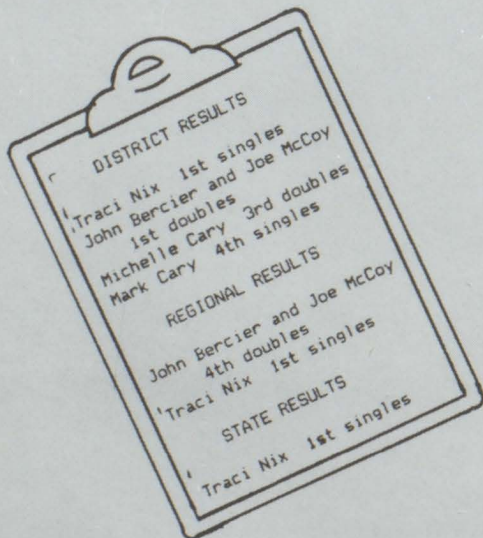 DISTRICT RESULTS
Traci Nix 1st singles
John Bercier and Joe McCoy
1st doubles
Michelle Cary 3rd doubles
Mark Cary 4th singles
REGIONAL RESULTS
John Bercier and Joe McCoy
4th doubles
Traci Nix 1st singles
STATE RESULTS
Traci Nix 1st singles